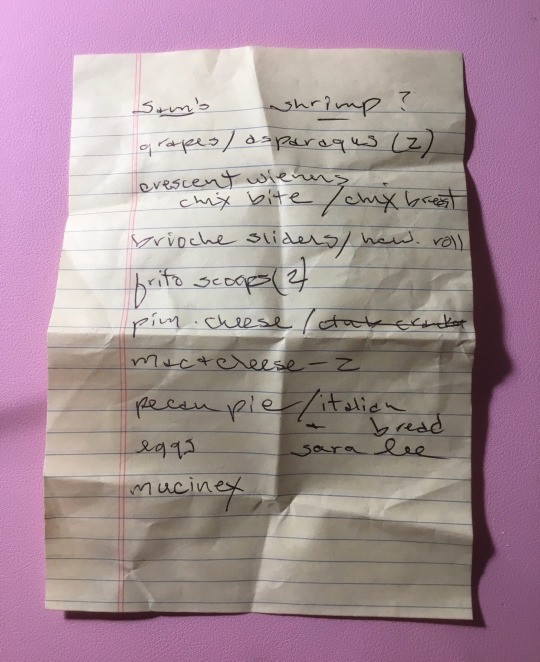 Sam's shrimp?
grapes/ asparagus (2)
crescent wienns
chix bite / chix breast
brioche sliders/ haw. roll
frito scoops (2)
pim. cheese / club cracker
mac + cheese - 2
pecan pie / italian
bread
eggs sara lee
mucinex